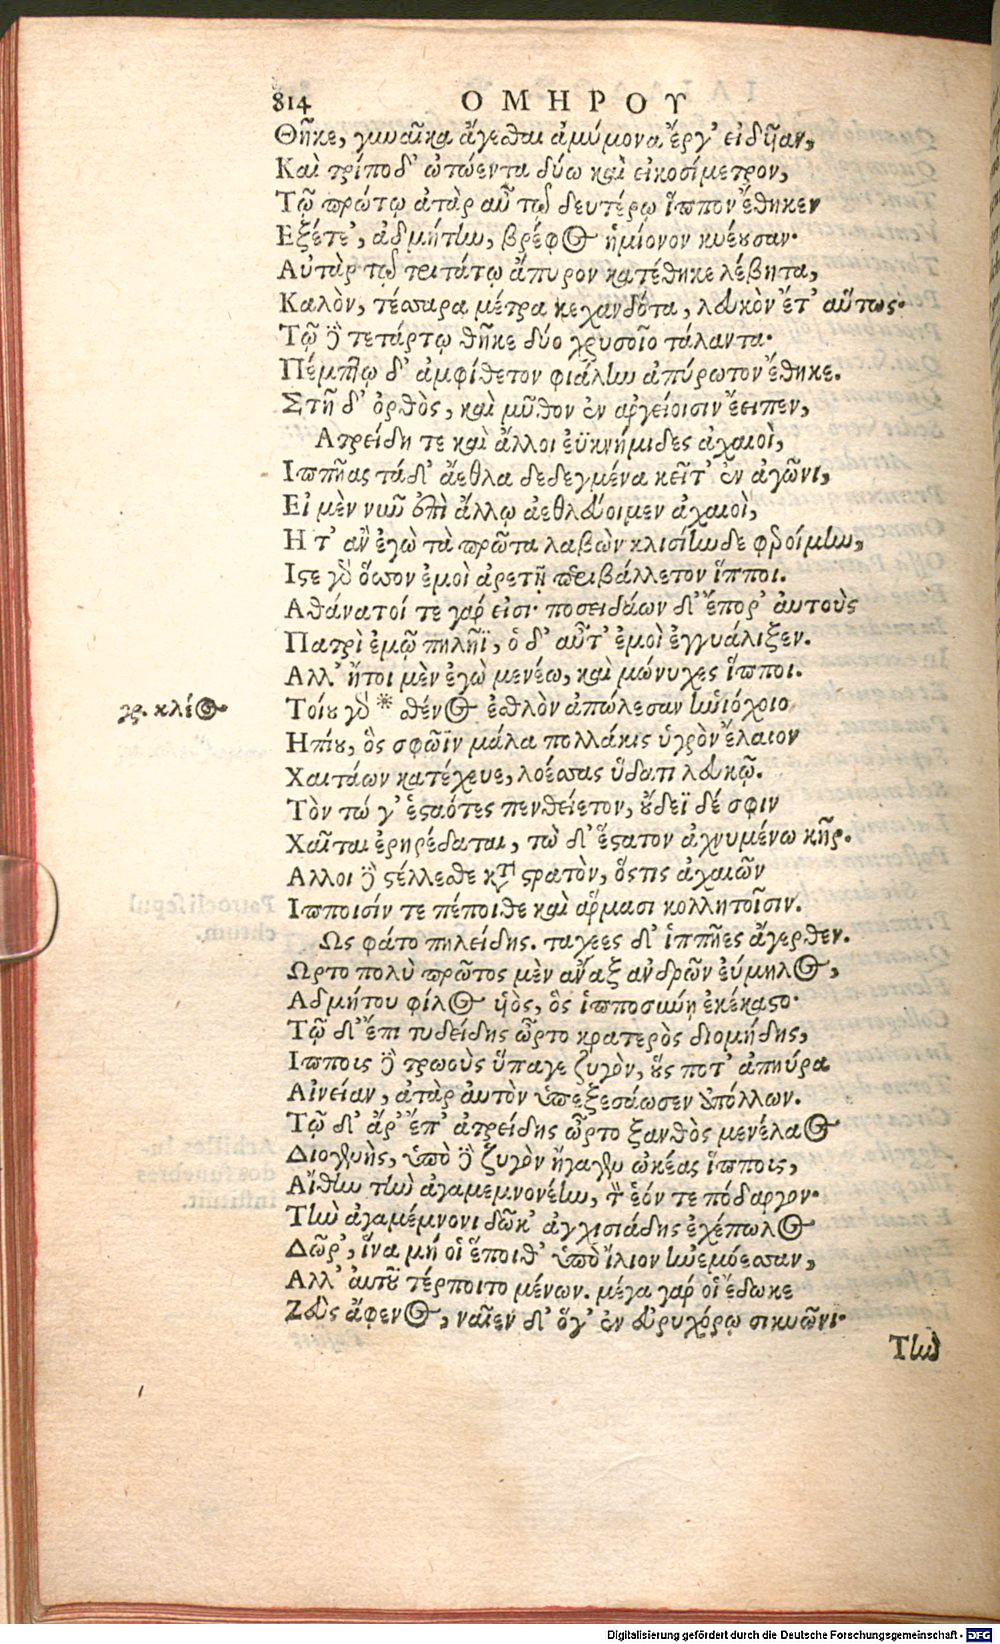 814 ΟΜΗΡΟΥ
Θῆκε, γυναῖκα ἄγεσθαι ἀμύμονα ἔργ' εἰδῆαν,
Καὶ τρίποδ' ὠτώεντα δύω καὶ εἰκοσίμετρον,
Τῷ πρώτῳ ἀτὰρ αὖ τῷ δευτέρῳ ἵππον ἔθηκεν
Εξέτε', ἀδμήτην, βρέφος ἡμίονον κυέουσαν·
Αὐτὰρ τῷ τριτάτῳ ἄπυρον κατέθηκε λέβητα,
Καλὸν, τέσσαρα μέτρα κεχανδότα, λευκὸν ἔτ' αὔτως·
Τῷ δὲ τετάρτῳ θῆκε δύο χρυσοῖο τάλαντα·
Πέμπτῳ δ' ἀμφίθετον φιάλην ἀπύρωτον ἔθηκε.
Στῆ δ' ὀρθὸς, καὶ μῦθον ἐν ἀργείοισιν ἔειπεν,
Ατρείδη τε καὶ ἄλλοι ἐϋκνήμιδες ἀχαιοὶ,
Ιππῆας τάδ' ἄεθλα δεδεγμένα κεῖτ' ἐν ἀγῶνι,
Εἰ μὲν νῦν ἐπὶ ἄλλῳ ἀεθλεύοιμεν ἀχαιοὶ,
Η τ' ἂν ἐγὼ τὰ πρῶτα λαβὼν κλισίηνδε φεροίμην,
Ιστε γὰρ ὅσσον ἐμοὶ ἀρετῇ περιβάλλετον ἵπποι.
Αθάνατοί τε γάρ εἰσι· ποσειδάων δ' ἔπορ' ἀυτοὺς
Πατρὶ ἐμῷ πηλῆϊ, ὁ δ' αὖτ' ἐμοὶ ἐγγυάλιξεν.
Αλλ' ἤτοι μὲν ἐγὼ μενέω, καὶ μώνυχες ἵπποι.
γρ. κλέος Τοίου γὰρ * σθένος ἐσθλὸν ἀπώλεσαν ἡνιόχοιο
Ηπίου, ὅς σφῶϊν μάλα πολλάκις ὑγρὸν ἔλαιον
Χαιτάων κατέχευε, λοέσσας ὕδατι λευκῷ.
Τὸν τώ γ' ἑσταότες πενθείετον, οὔδεϊ δέ σφιν
Χαῖται ἐρηρέδαται, τὼ δ' ἕστατον ἀχνυμένω κῆρ.
Αλλοι δὲ στέλλεσθε κατὰ στρατὸν, ὅστις ἀχαιῶν
Ιπποισίν τε πέποιθε καὶ ἅρμασι κολλητοῖσιν.
Ως φάτο πηλείδης. ταχέες δ' ἱππῆες ἄγερθεν.
Ωρτο πολὺ πρῶτος μὲν ἄναξ ἀνδρῶν ἐύμηλος,
Αδμήτου φίλος υἱὸς, ὃς ἱπποσύνῃ ἐκέκαστο·
Τῷ δ' ἔπι τυδείδης ὦρτο κρατερὸς διομήδης,
Ιπποις δὲ τρωοὺς ὕπαγε ζυγὸν, οὕς ποτ' ἀπηύρα
Αἰνείαν, ἀτὰρ ἀυτὸν ὑπεξεσάωσεν ἀπόλλων.
Τῷ δ' ἄρ' ἔπ' ἀτρείδης ὦρτο ξανθὸς μενέλαος
Διογενὴς, ὑπὸ δὲ ζυγὸν ἤγαγεν ὠκέας ἵπποις,
Αἴθην τὴν ἀγαμεμνονέην, τὸν ἑόν τε πόδαργον·
Τὴν ἀγαμέμνονι δῶκ' ἀγχισιάδης ἐχέπωλος
Δῶρ', ἵνα μή οἱ ἕποιθ' ὑπὸ ἴλιον ἠνεμόεσσαν,
Αλλ' ἀυτοῦ τέρποιτο μένων. μέγα γάρ οἱ ἔδωκε
Ζεὺς ἄφενος, ναῖεν δ' ὅγ' ἐν εὐρυχόρῳ σικυῶνι·
Τὴν
Digitalisierung gefördert durch die Deutsche Forschungsgemeinschaft - DFG